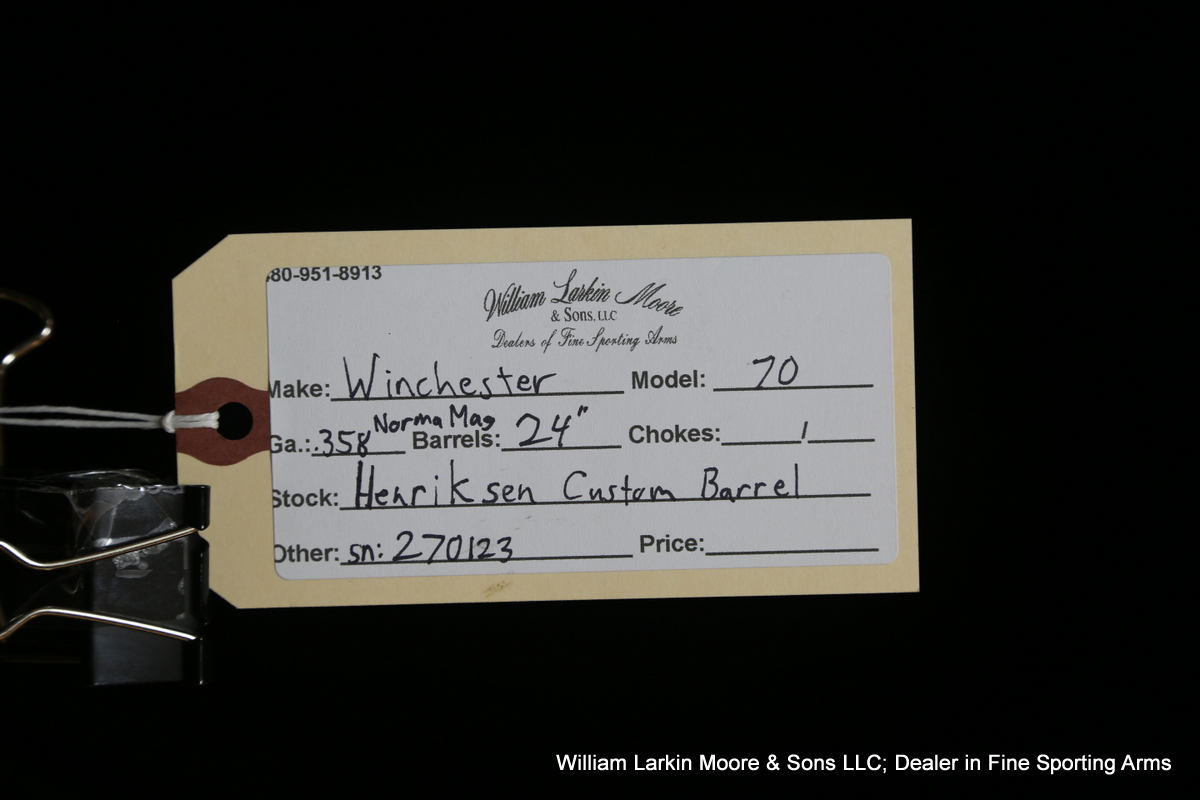 80-951-8913
William Larkin Moore
& Sons, LLC
Dealers of Fine Sporting Arms
Make: Winchester Model: 70
Norma Mag
Ga.: .358 Barrels: 24" Chokes: /
Stock: Henriksen Custom Barrel
Other: sn: 270123 Price:
William Larkin Moore & Sons LLC; Dealer in Fine Sporting Arms